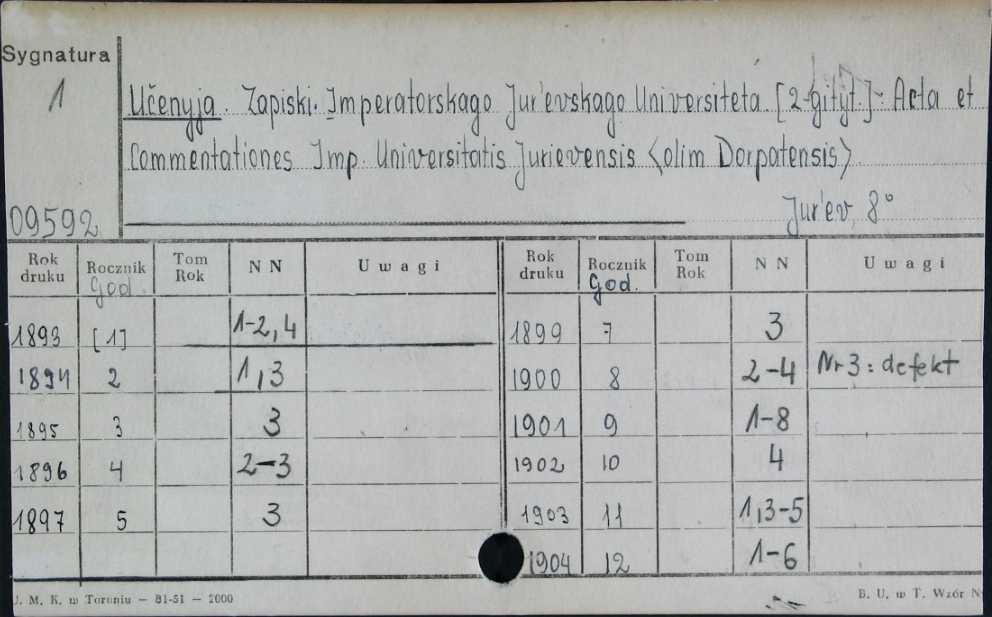 Sygnatura
1
Učenyja. Zapiski. Imperatorskago Jur'evskago Universiteta. [2-gi tyt.]- Acta et
Commentationes Imp. Universitatis Jurievensis <olim Dorpatensis>
Jur'ev, 8°
09592
Rok druku Rocznik God. Tom Rok NN Uwagi Rok druku Rocznik God. Tom Rok NN Uwagi
1893 [1] 1-2,4 1899 7 3
1894 2 1,3 1900 8 2-4 Nr 3: defekt
1895 3 3 1901 9 1-8
1896 4 2-3 1902 10 4
1897 5 3 1903 11 1,3-5
1904 12 1-6
J. M. K. w Toruniu — 81-51 — 2000
B. U. w T. Wzór